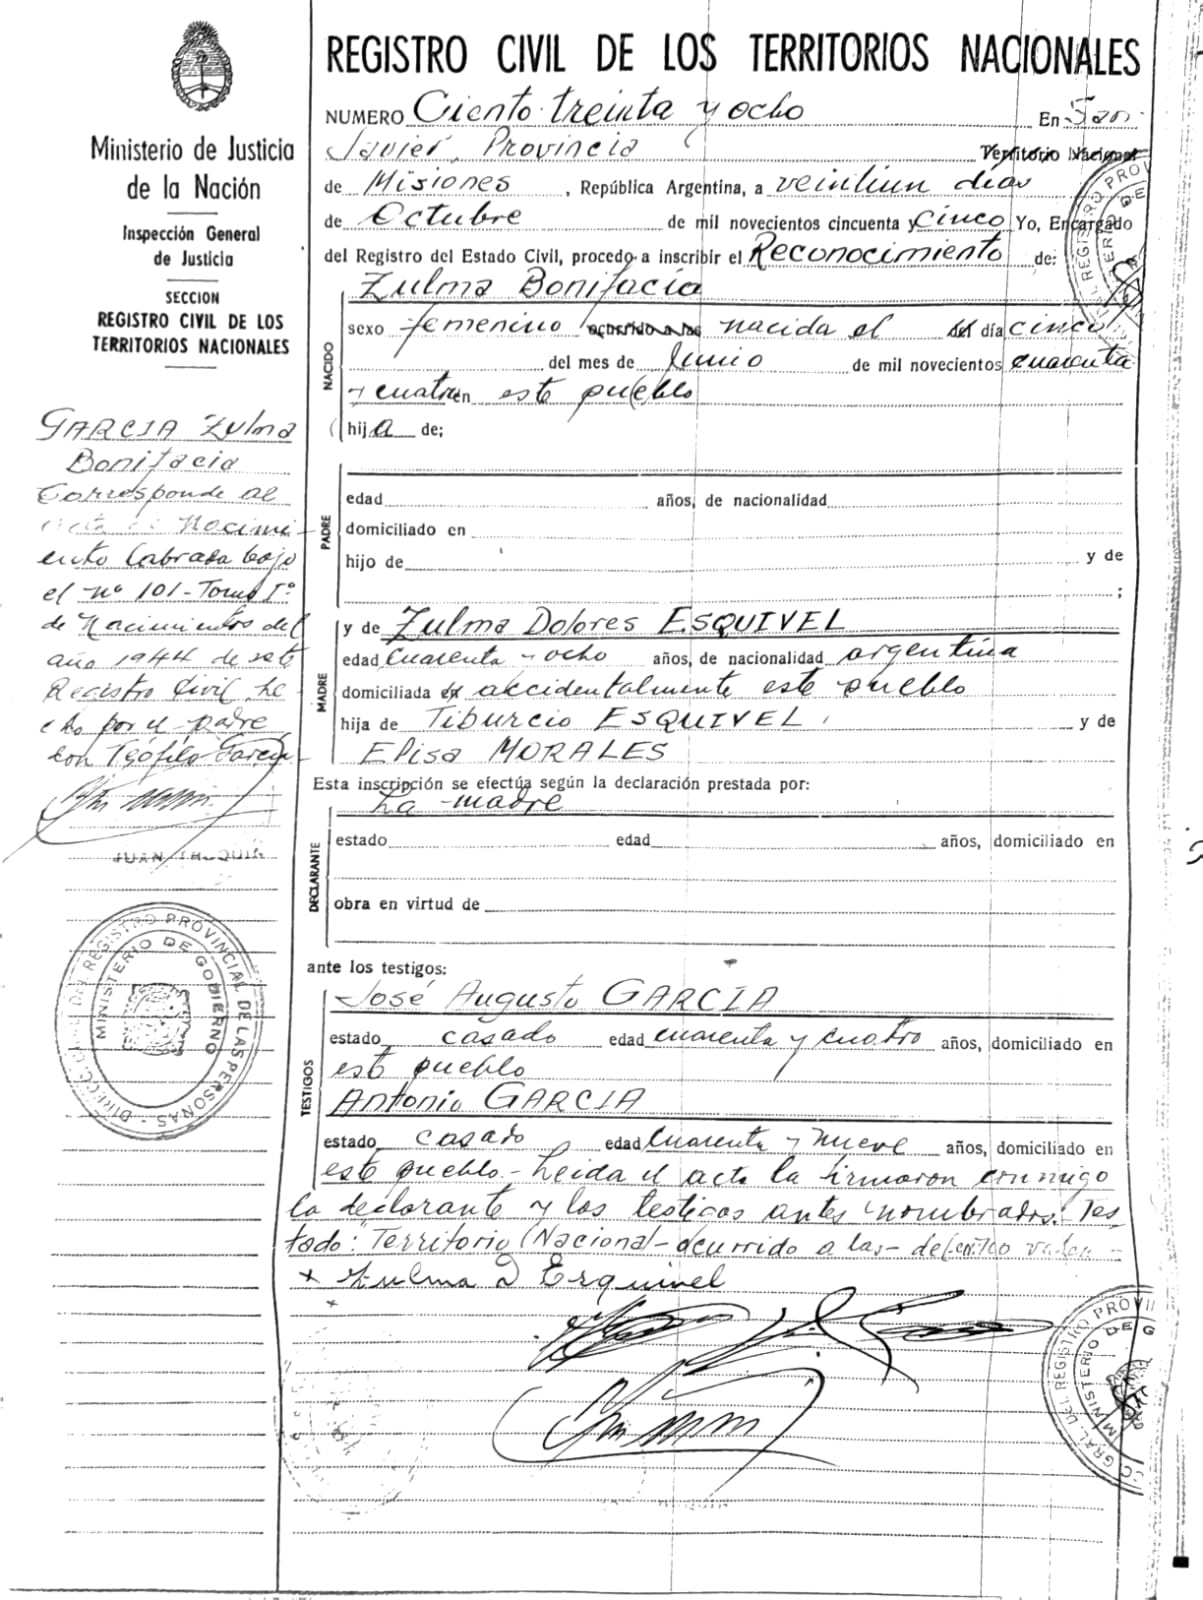 REGISTRO CIVIL DE LOS TERRITORIOS NACIONALES
NUMERO Ciento treinta y ocho En San
Javier, Provincia Territorio Nacional
de Misiones, República Argentina, a veintiun dias
de Octubre de mil novecientos cincuenta y cinco Yo, Encargado
del Registro del Estado Civil, procedo a inscribir el Reconocimiento de:
Zulma Bonifacia
NACIDO
sexo femenino ocurrido a las nacida el del día cinco
del mes de Junio de mil novecientos cuarenta
y cuatro en este pueblo
hija de;
PADRE
edad años, de nacionalidad
domiciliado en
hijo de y de
;
MADRE
y de Zulma Dolores ESQUIVEL
edad cuarenta y ocho años, de nacionalidad argentina
domiciliada en accidentalmente este pueblo
hija de Tiburcio ESQUIVEL, y de
Elisa MORALES
Esta inscripción se efectúa según la declaración prestada por:
La madre
DECLARANTE
estado edad años, domiciliado en
obra en virtud de
ante los testigos:
TESTIGOS
José Augusto GARCIA
estado casado edad cuarenta y cuatro años, domiciliado en
este pueblo
Antonio GARCIA
estado casado edad cuarenta y nueve años, domiciliado en
este pueblo - Leida el acta la firmaron conmigo
la declarante y los testigos antes nombrados. Tes
tado: "Territorio Nacional - ocurrido a las - del - en
x Zulma D Esquivel
x
Ministerio de Justicia
de la Nación
Inspección General
de Justicia
SECCION
REGISTRO CIVIL DE LOS
TERRITORIOS NACIONALES
GARCIA Zulma
Bonifacia
Corresponde al
acta de Nacimi
ento labrada bajo
el nº 101 - Tomo Iº
de Nacimientos del
año 1944 de este
Registro Civil he
cho por el padre
don Teófilo Garcia
JUAN
REGISTRO PROVINCIAL DE LAS PERSONAS
MINISTERIO DE GOBIERNO
REGISTRO PRO
DEL REGISTRO PROVI
MINISTERIO DE G